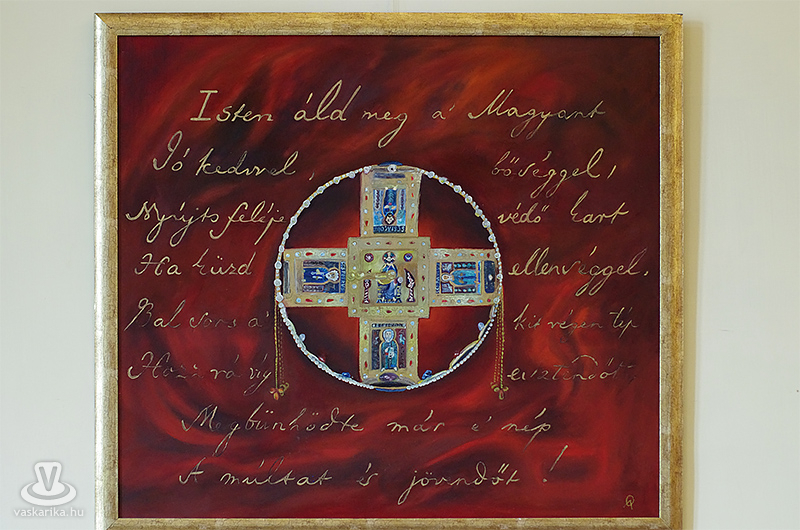 Isten áld meg a' Magyart
Jó kedvvel, bőséggel,
Nyújts feléje védő kart
Ha küzd ellenséggel.
Bal sors a' kit régen tép
Hozz rá víg esztendőt,
Megbűnhödte már e' nép
A' múltat és jövendőt!
vaskarika.hu